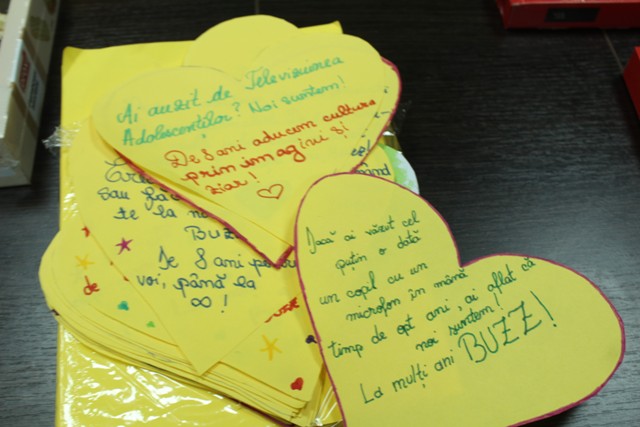 Ai auzit de Televiziunea
Adolescenților? Noi suntem!
De 8 ani aducem cultura
prin imagini și
ziar!
sau
te la
BUZ
De 8 ani
voi, până la
∞!
de
Dacă ai văzut cel
puțin o dată
un copil cu un
microfon în mână
timp de opt ani, ai aflat că
noi suntem
BUZZ!
La mulți ani